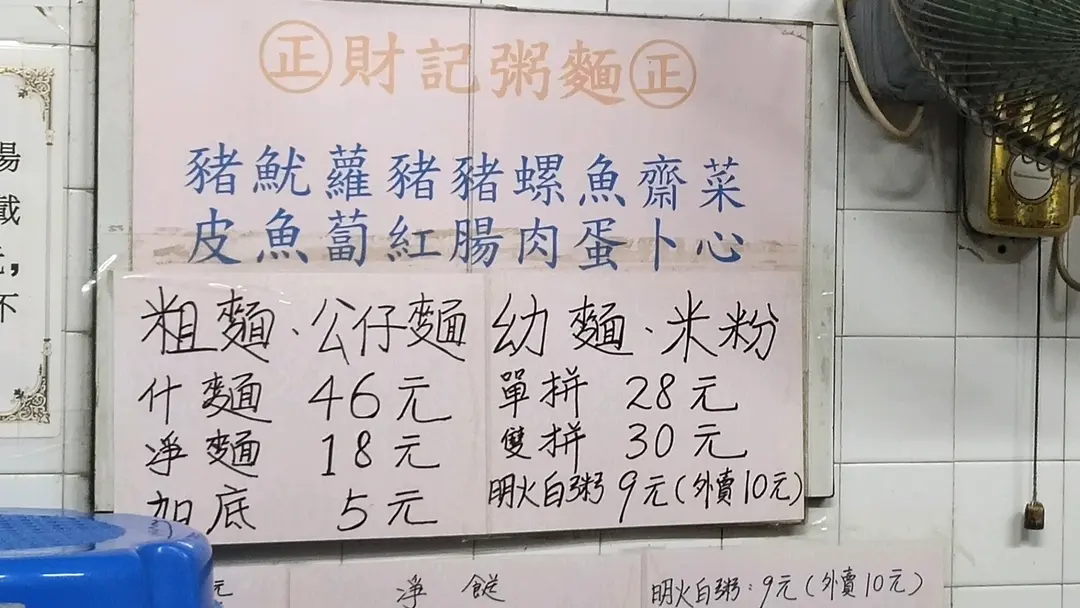 正財記粥麵正
豬魷蘿豬豬螺魚齋菜
皮魚蔔紅腸肉蛋卜心
粗麵、公仔麵
什麵 46元
凈麵 18元
加底 5元
幼麵、米粉
單拼 28元
雙拼 30元
明火白粥 9元(外賣10元)
元
凈 餸
明火白粥:9元(外賣10元)